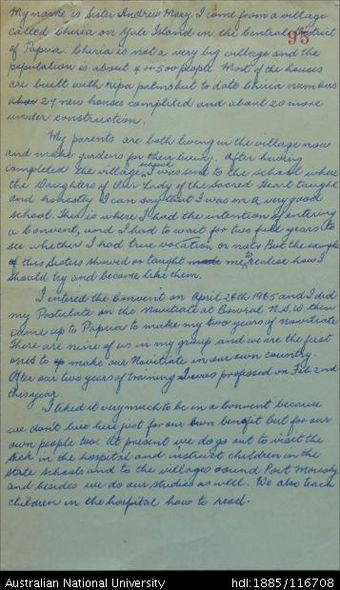 My name is Sister Andrew Mary. I come from a village
called Chiria on Yule Island in the Central District
95
of Papua. Chiria is not a very big village and the
population is about 4 or 500 people. Most of the houses
are built with nipa palms but to date Chiria numbers
27 new houses completed and about 20 more
under construction.
My parents are both living in the village now
and make gardens for their living. After having
completed the village school, I was sent to the school where
the Daughters of Our Lady of the Sacred Heart taught
and honestly I can say that I was in a very good
school. This is where I had the intention of entering
a Convent, and I had to wait for two full years to
see whether I had true vocation or not. But the example
of this Sisters showed or taught me to realise how I
should try and become like them.
I entered the Convent on April 26th 1965 and I did
my Postulate on the Novitiate at Bowral N.S.W. then
came up to Papua to make my two years of novitiate.
There are nine of us in my group and we are the first
ones to make our Novitiate in our own country.
After our two years of training I was professed on Feb 2nd
this year.
I liked it very much to be in a Convent because
we don't live here just for our own benefit but for our
own people too. At present we do go out to visit the
sick in the hospital and instruct children in the
state schools and to the villages round Port Moresby
and besides we do our studies as well. We also teach
children in the hospital how to read.
Australian National University
hdl:1885/116708